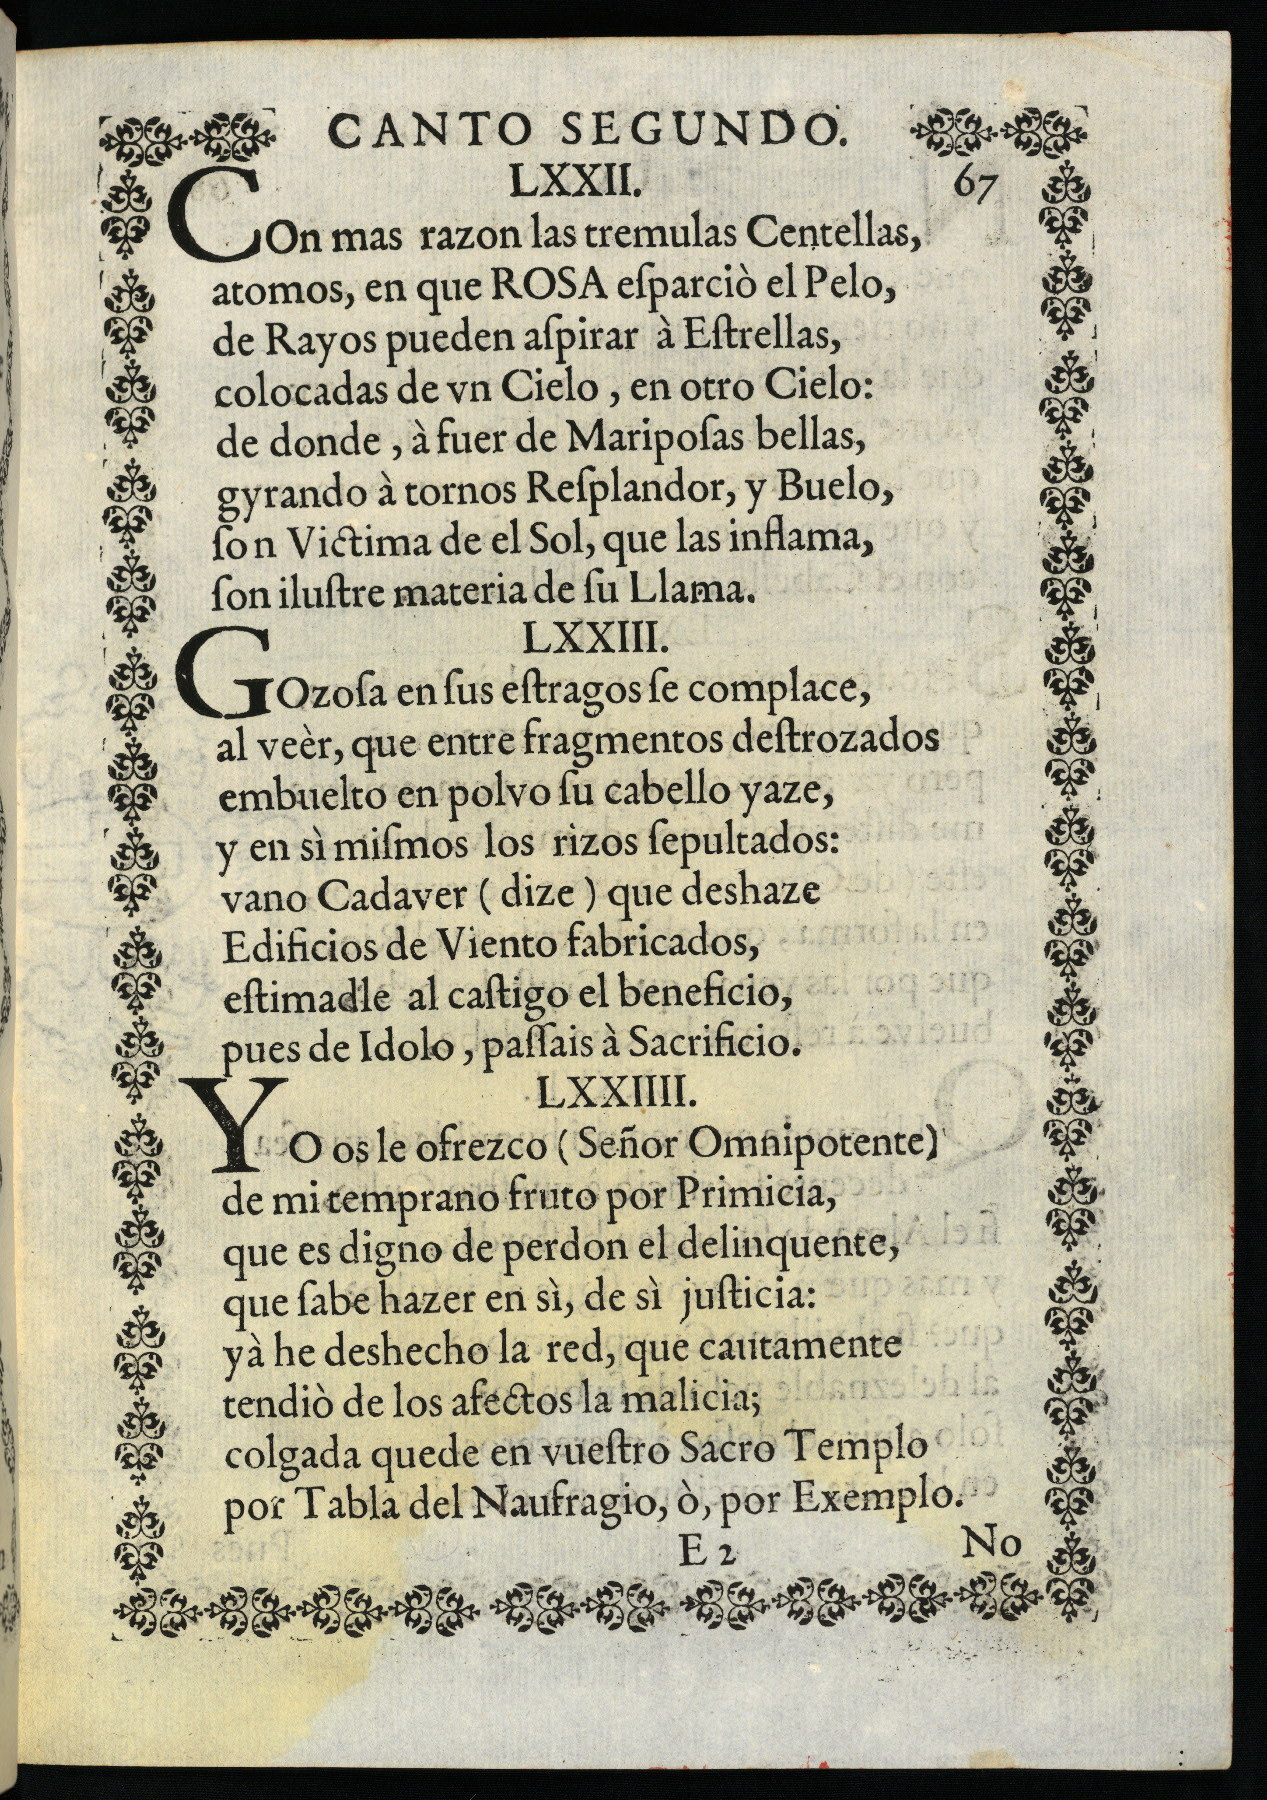 CANTO SEGUNDO.
LXXII. 67
COn mas razon las tremulas Centellas,
atomos, en que ROSA eſparciò el Pelo,
de Rayos pueden aſpirar à Eſtrellas,
colocadas de vn Cielo, en otro Cielo:
de donde, à fuer de Maripoſas bellas,
gyrando à tornos Reſplandor, y Buelo,
ſon Victima de el Sol, que las inflama,
ſon iluſtre materia de ſu Llama.
LXXIII.
GOzoſa en ſus eſtragos ſe complace,
al veèr, que entre fragmentos deſtrozados
embuelto en polvo ſu cabello yaze,
y en sì miſmos los rizos ſepultados:
vano Cadaver (dize) que deshaze
Edificios de Viento fabricados,
eſtimadle al caſtigo el beneficio,
pues de Idolo, paſſais à Sacrificio.
LXXIIII.
YO os le ofrezco (Señor Omnipotente)
de mi temprano fruto por Primicia,
que es digno de perdon el delinquente,
que ſabe hazer en sì, de sì juſticia:
yà he deshecho la red, que cautamente
tendiò de los afectos la malicia;
colgada quede en vueſtro Sacro Templo
por Tabla del Naufragio, ò, por Exemplo.
E 2 No